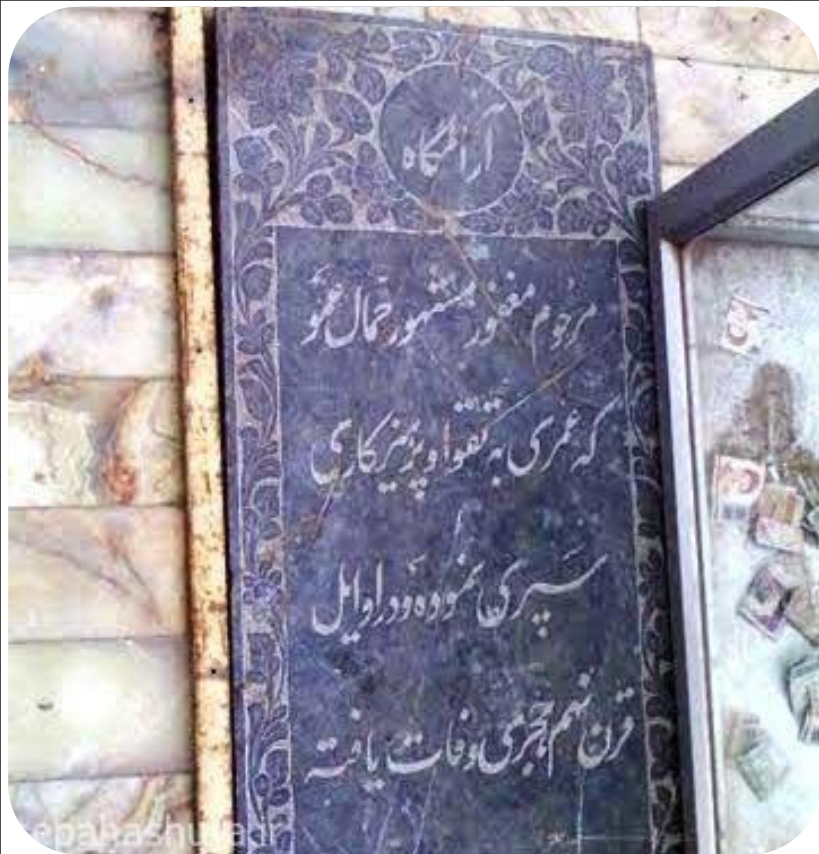 آرامگاه
مرحوم مغفور مشهور جمال عمو
که عمری به تقوا و پرهیزکاری
سپری نموده و در اوایل
قرن نهم هجری وفات یافته